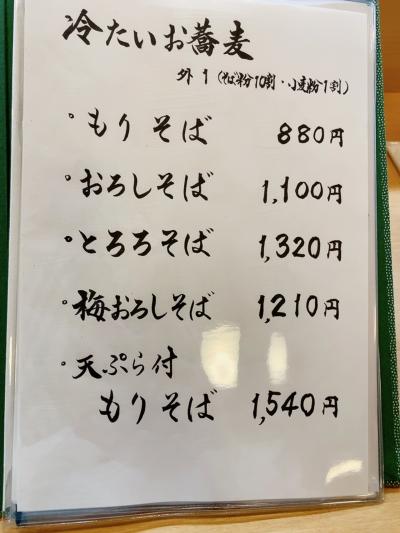 冷たいお蕎麦
外1(そば粉10割・小麦粉1割)
・もりそば 880円
・おろしそば 1,100円
・とろろそば 1,320円
・梅おろしそば 1,210円
・天ぷら付
もりそば 1,540円